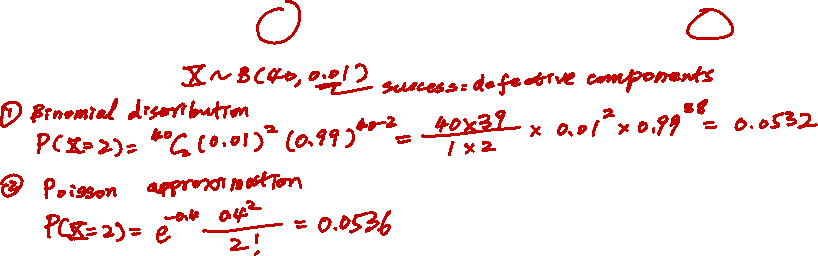 X ~ B(40, 0.01) success = defective components
① Binomial distribution
P(X=2) = ⁴⁰C₂ (0.01)² (0.99)⁴⁰⁻² = (40×39)/(1×2) × 0.01² × 0.99³⁸ = 0.0532
② Poisson approximation
P(X=2) = e^(-0.4) 0.4²/2! = 0.0536